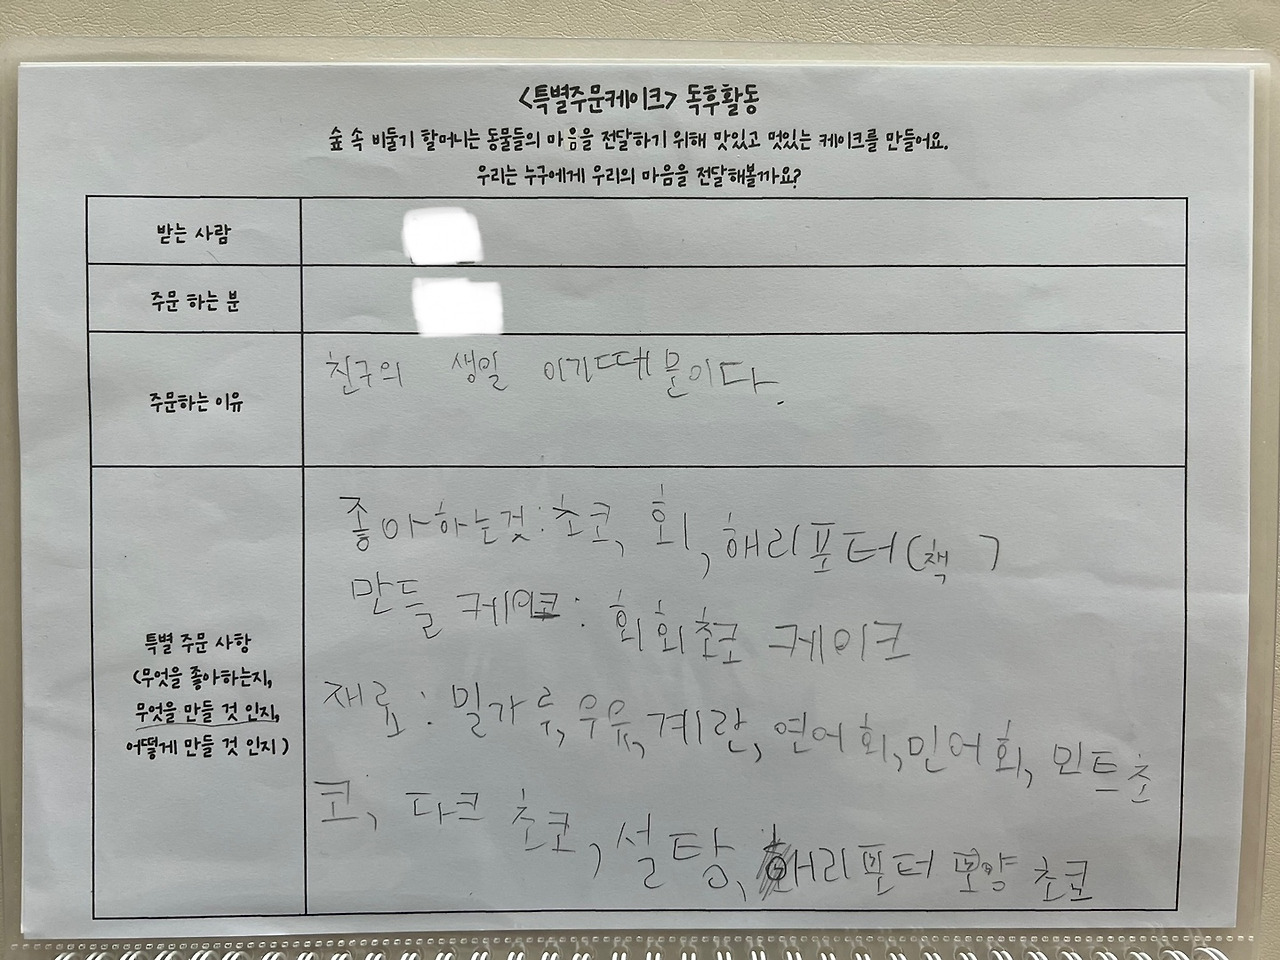 <특별주문케이크> 독후활동
숲 속 비둘기 할머니는 동물들의 마음을 전달하기 위해 맛있고 멋있는 케이크를 만들어요.
우리는 누구에게 우리의 마음을 전달해볼까요?
받는 사람
주문 하는 분
주문하는 이유
친구의 생일 이기때문이다.
특별 주문 사항
(무엇을 좋아하는지,
무엇을 만들 것 인지,
어떻게 만들 것 인지)
좋아하는것:초코, 회, 해리포터(책)
만들 케이크: 회회초코 케이크
재료: 밀가루, 우유, 계란, 연어회, 민어회, 민트초
코, 다크 초코, 설탕, 해리포터 모양 초코